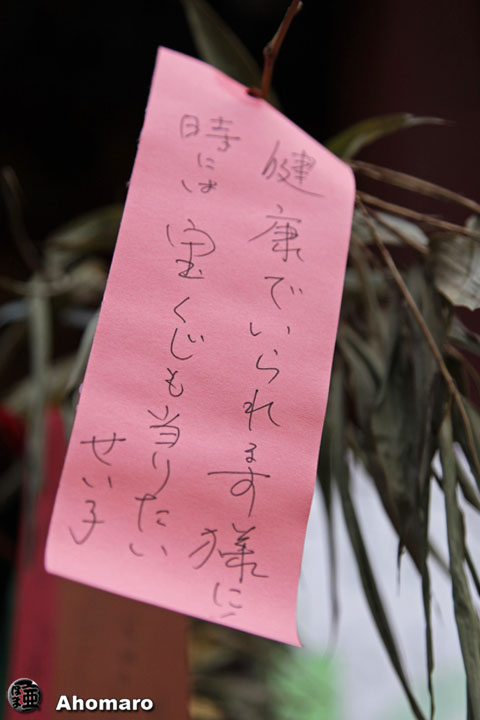 健康でいられます様に
時には宝くじも当りたい
せい子
Ahomaro